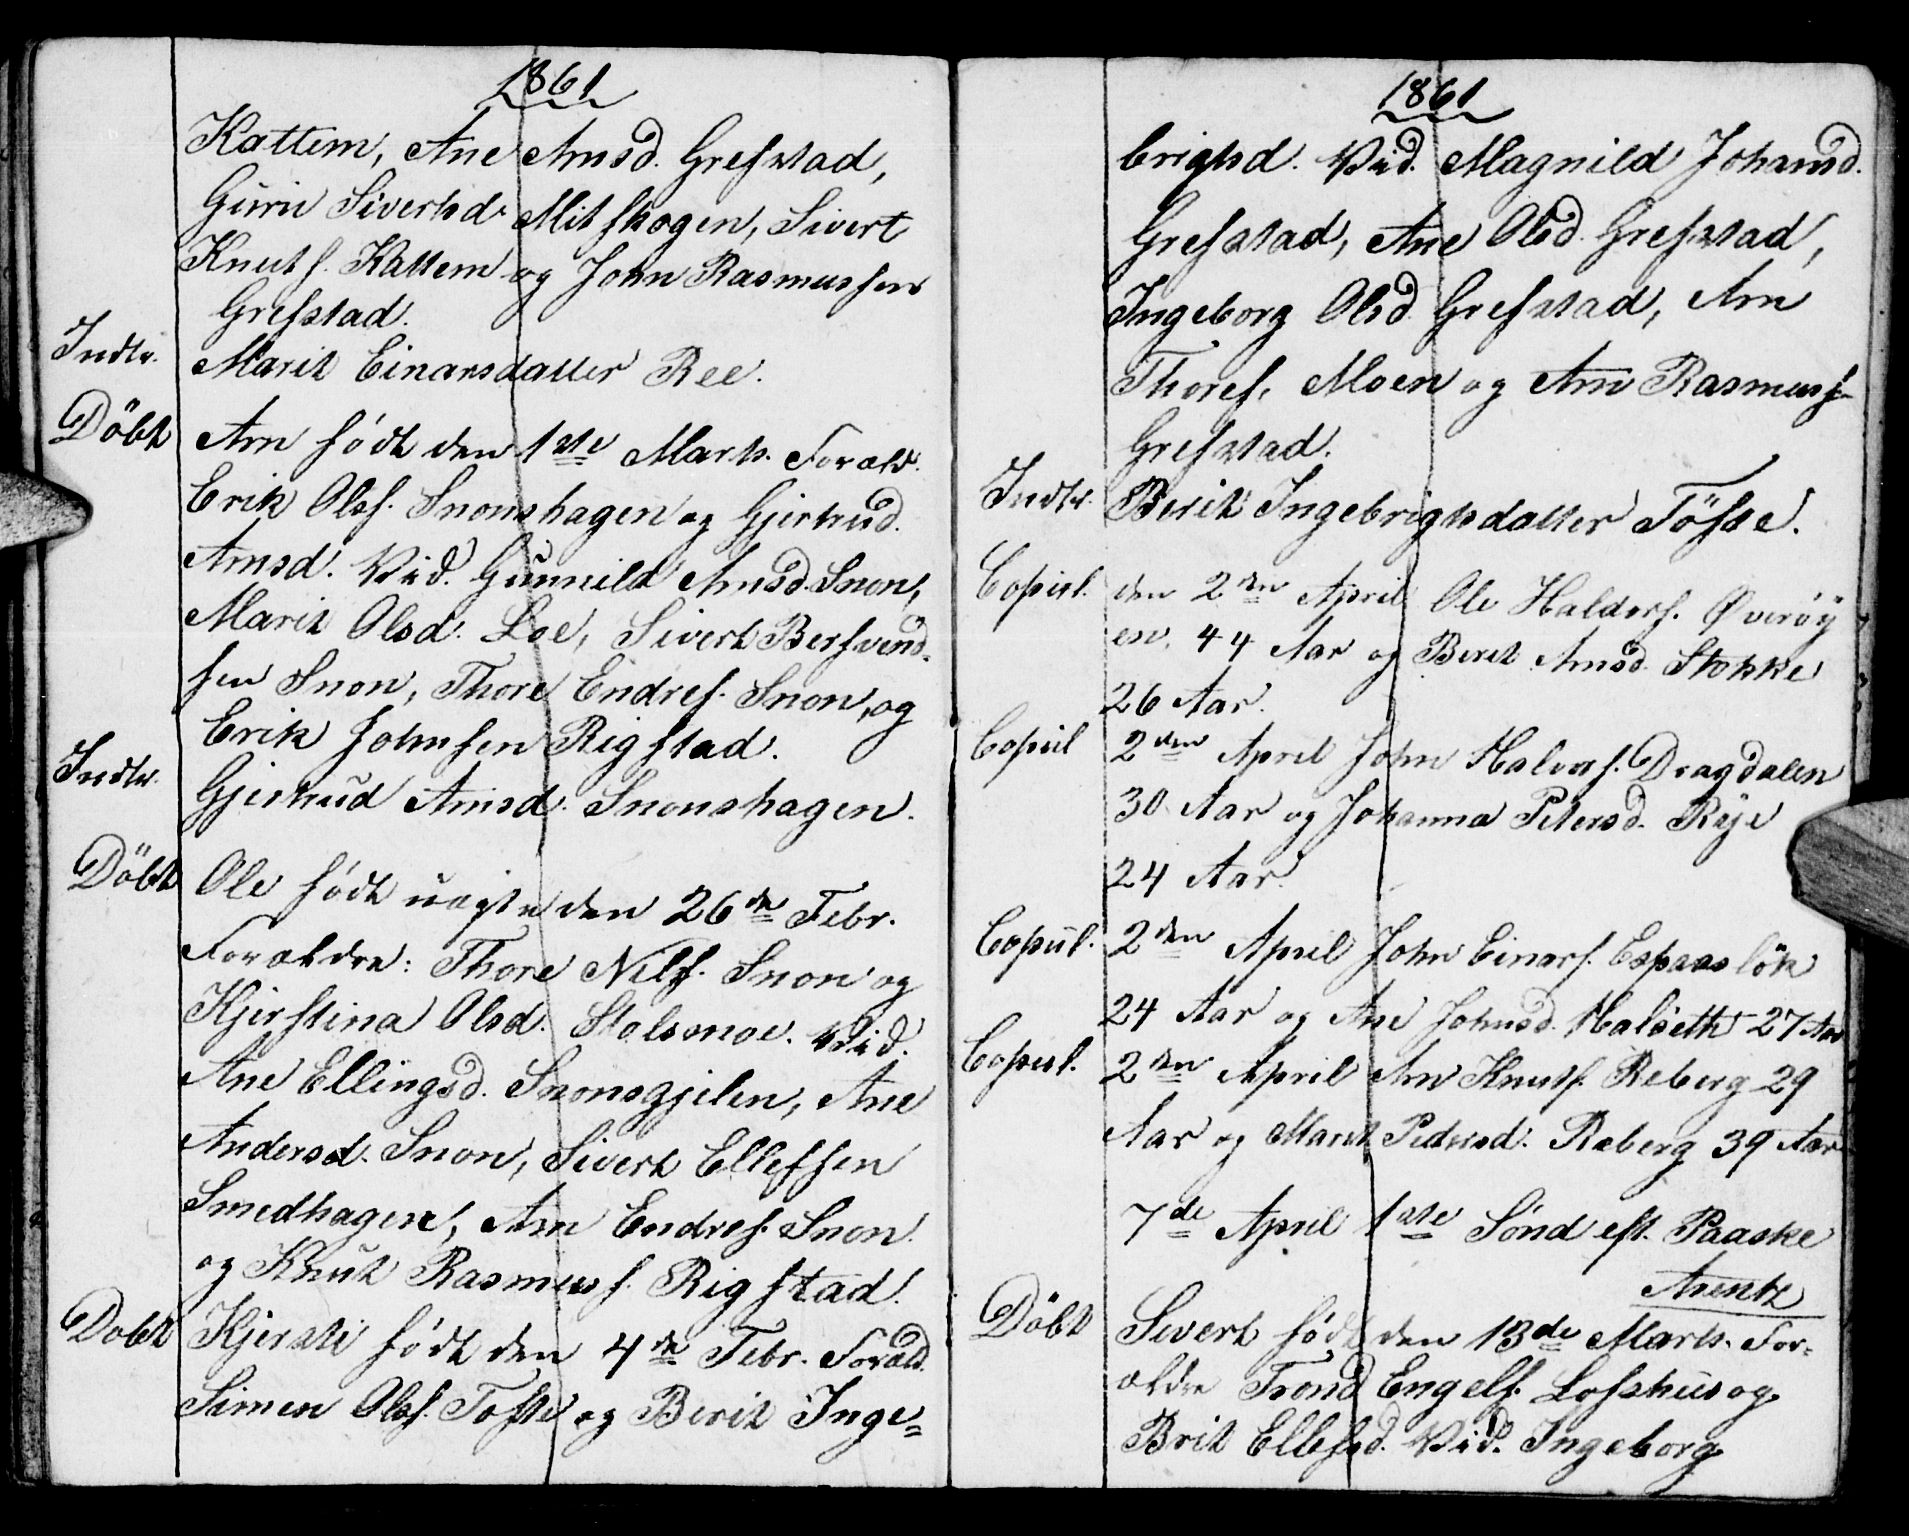 1861
Kattem, Ane Arnsd. Grefstad,
Guru Sivertsd. Mitskogen, Sivert
Knuts. Kattem og John Rasmussen
Grefstad.
Indtr. Marit Einarsdatter Ree.
Döbt Arn født den 1ste Marts. Foræld.
Erik Ols. Snonshagen og Gjertrud
Arnsd. Vid. Gunnild Arnsd. Snon,
Marit Olsd. Loe, Sivert Bersvend-
sen Snon, Thore Endres. Snon, og
Erik Johnsen Rigstad.
Indtr. Gjertrud Arnsd. Snonshagen.
Döbt Ole født uægte den 26de Febr.
Forældre: Thore Nils. Snon og
Kjerstina Olsd. Stolsmoe. Vid.
Ane Ellingsd. Snonsgjelen, Ane
Andersd. Snon, Sivert Ellefsen
Smedhagen, Arn Endres. Snon
og Knut Rasmuss. Rigstad.
Döbt Kjersti født den 4de Febr. Foræld.
Simen Ols. Tofte og Berit Inge=
1861
brigtsd. Vid. Magnild Johansd.
Grefstad, Ane Olsd. Grefstad,
Ingeborg Olsd. Grefstad, Arn
Thores. Moen og Arn Rasmuss.
Grefstad.
Indtr. Berit Ingebrigtsdatter Töfte.
Copul. den 2den April Ole Haldors. Øverøy
en. 44 Aar og Beret Arnsd. Stokke
26 Aar.
Copul 2den April John Halvors. Dragdalen
30 Aar og Johanna Petersd. Røje
24 Aar.
Copul. 2den April John Einars. Espaas lök
24 Aar og Ane Johnsd. Halseth 27 Aar
Copul. 2den April Arn Knuts. Reberg 29
Aar og Marit Pedersd. Reberg 39 Aar
7de April 1ste Sönd eft. Paaske
Arentz
Döbt Sivert født den 13de Marts. For=
ældre Trond Engels. Lofshus og
Brit Ellefsd. Vid. Ingeborg